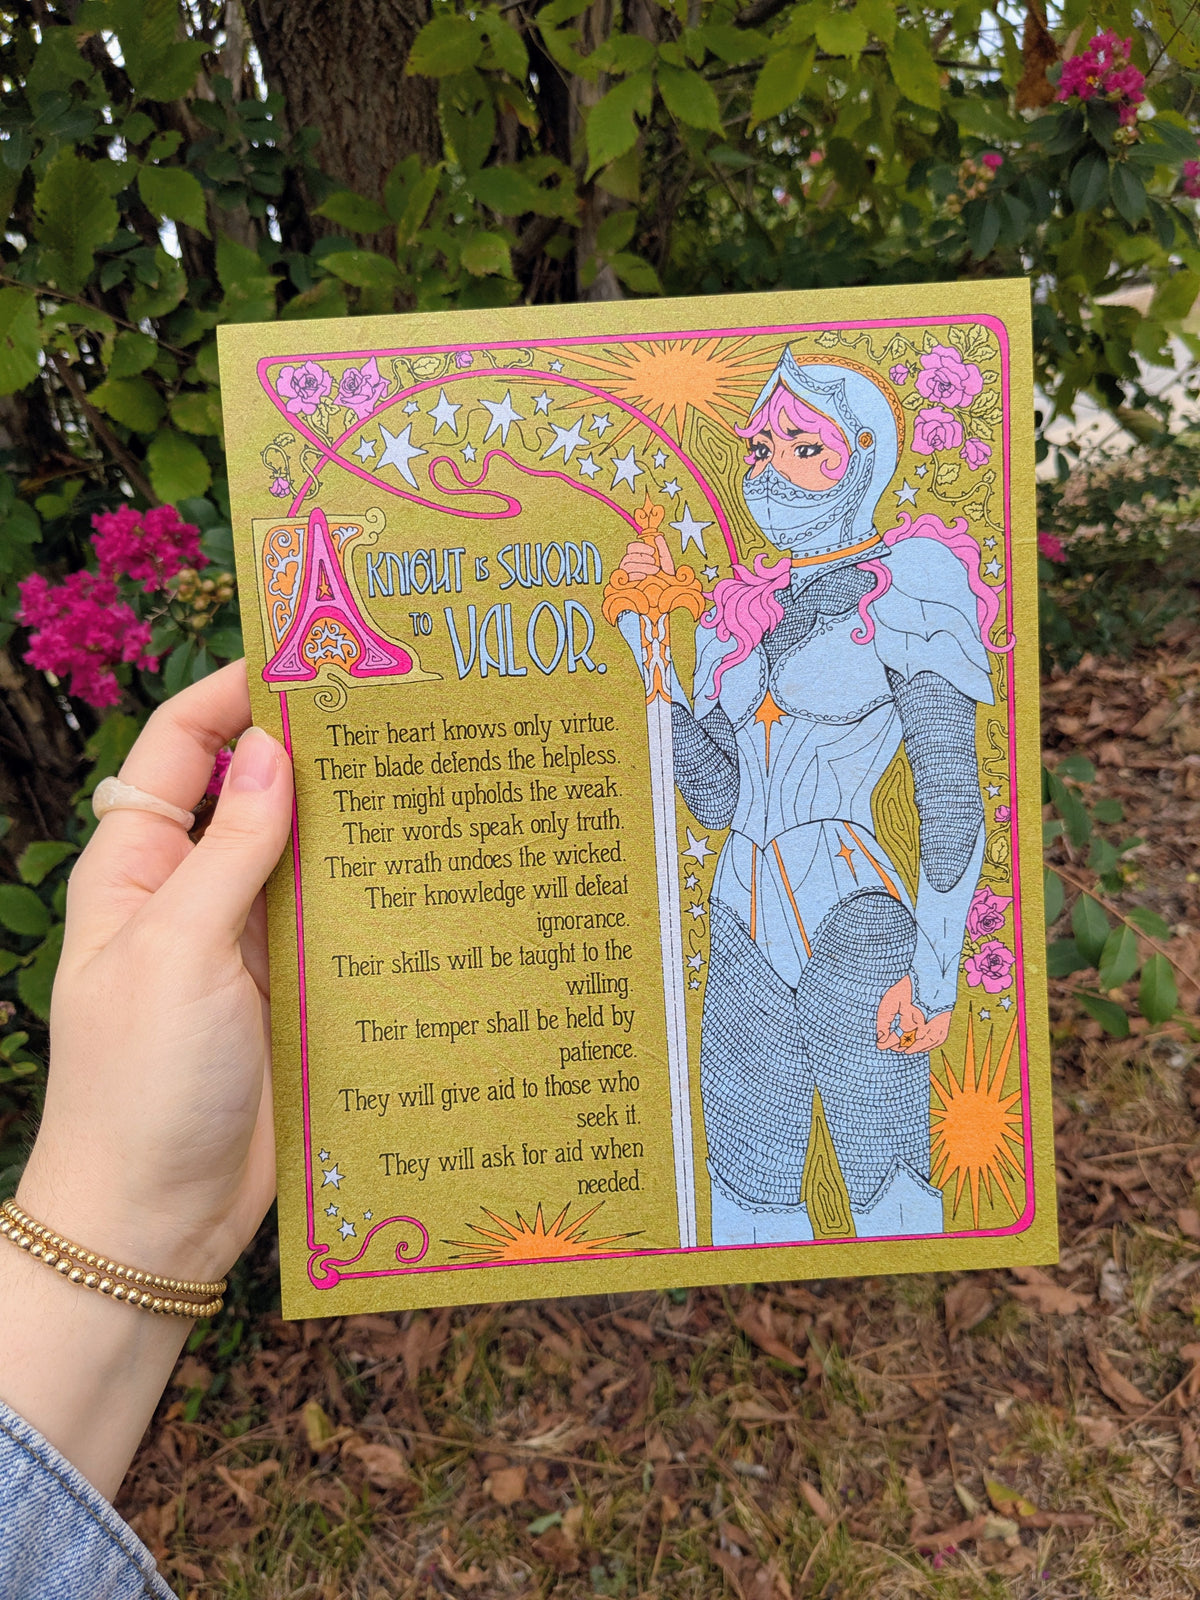 A KNIGHT IS SWORN
TO VALOR.
Their heart knows only virtue.
Their blade defends the helpless.
Their might upholds the weak.
Their words speak only truth.
Their wrath undoes the wicked.
Their knowledge will defeat
ignorance.
Their skills will be taught to the
willing.
Their temper shall be held by
patience.
They will give aid to those who
seek it.
They will ask for aid when
needed.